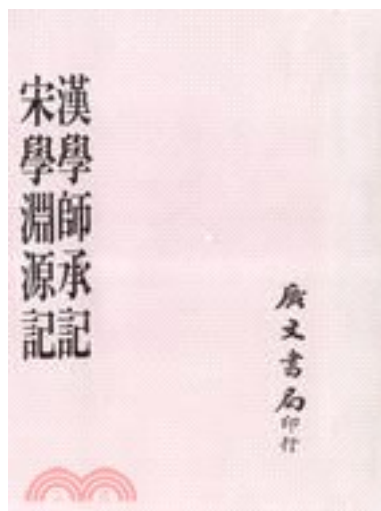 漢學師承記
宋學淵源記
廣文書局印行